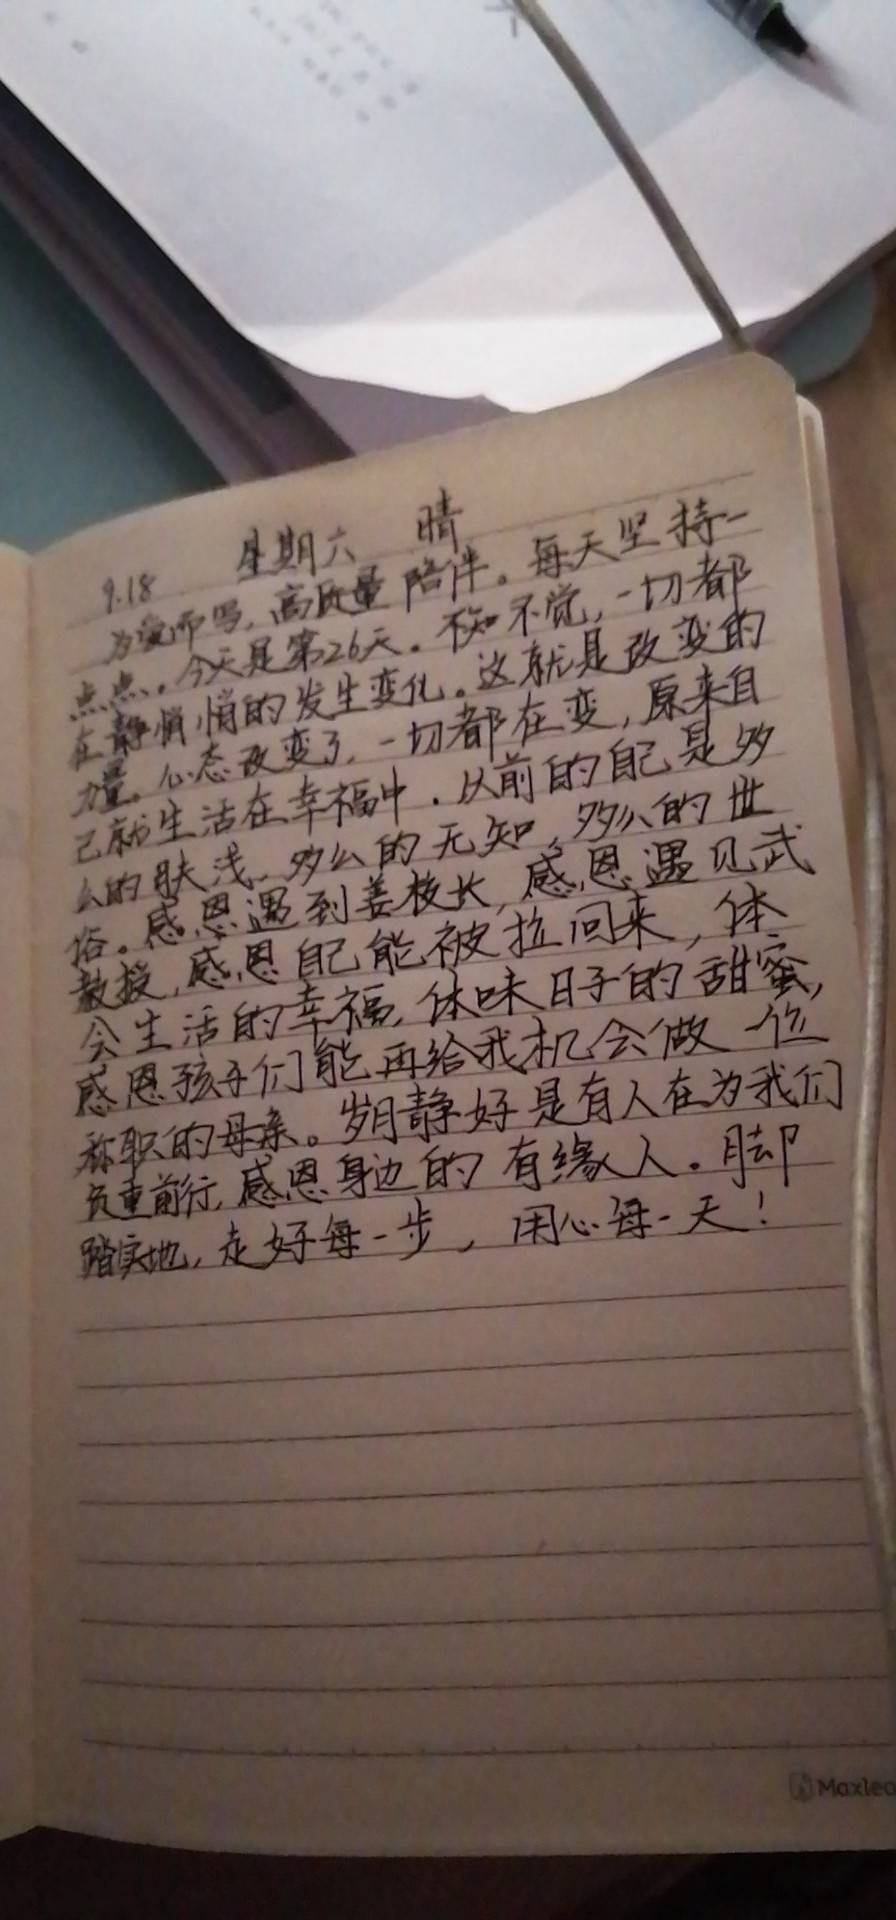 9.18 星期六 晴
为爱而写，高质量陪伴。每天坚持一
点点。今天是第26天。不知不觉，一切都
在静悄悄的发生变化。这就是改变的
力量。心态改变了，一切都在变，原来自
己就生活在幸福中。从前的自己是多
么的肤浅、多么的无知，多么的世
俗。感恩遇到姜校长，感恩遇见武
教授，感恩自己能被拉回来，体
会生活的幸福，体味日子的甜蜜，
感恩孩子们能再给我机会做一位
称职的母亲。岁月静好是有人在为我们
负重前行，感恩身边的有缘人。脚
踏实地，走好每一步，用心每一天！